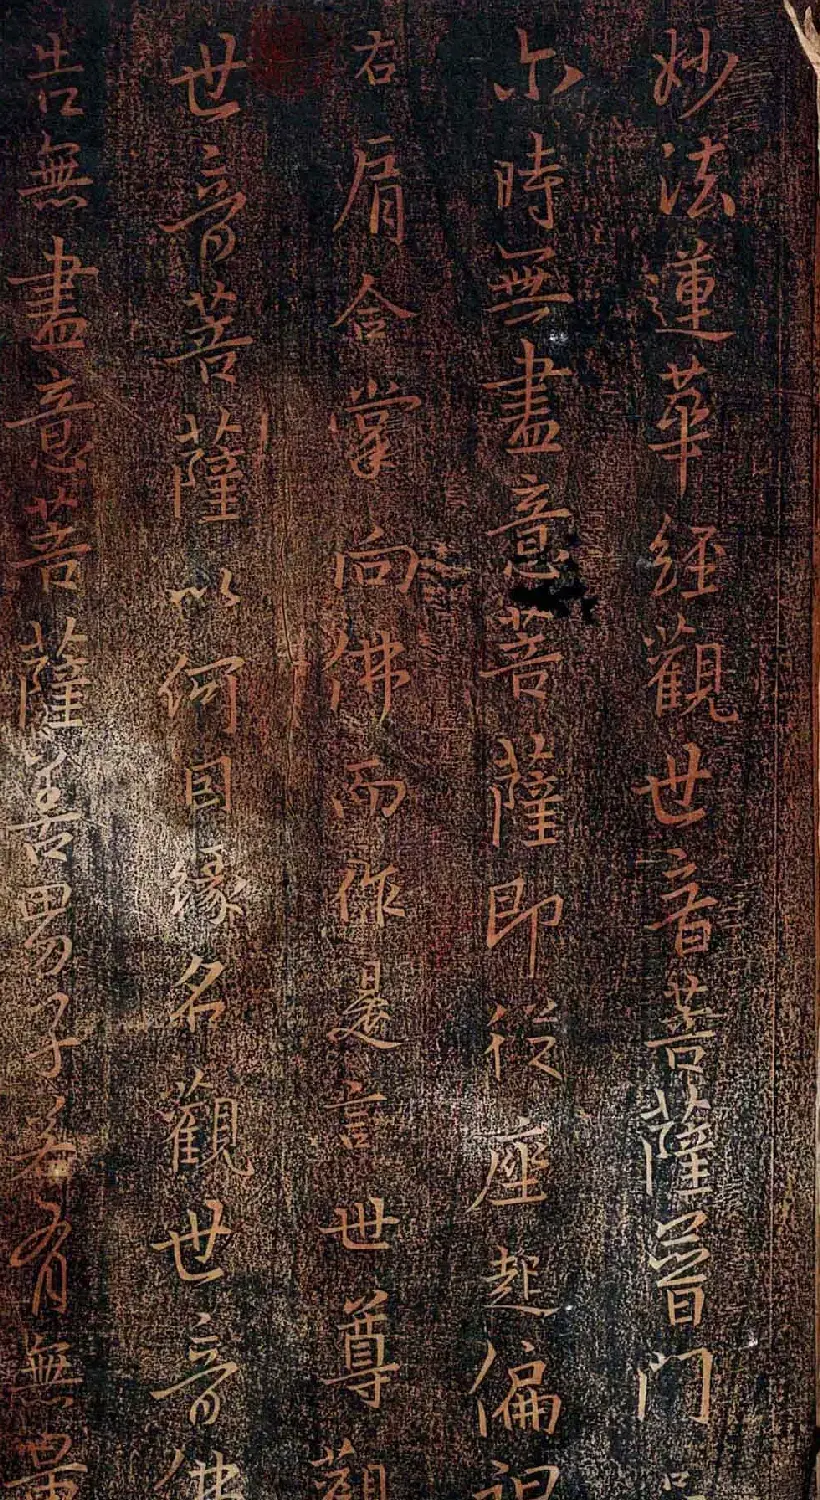 妙法蓮華經觀世音菩薩普門
尒時無盡意菩薩即從座起偏袒
右肩合掌向佛而作是言世尊觀
世音菩薩以何因緣名觀世音佛
告無盡意菩薩善男子若有無量